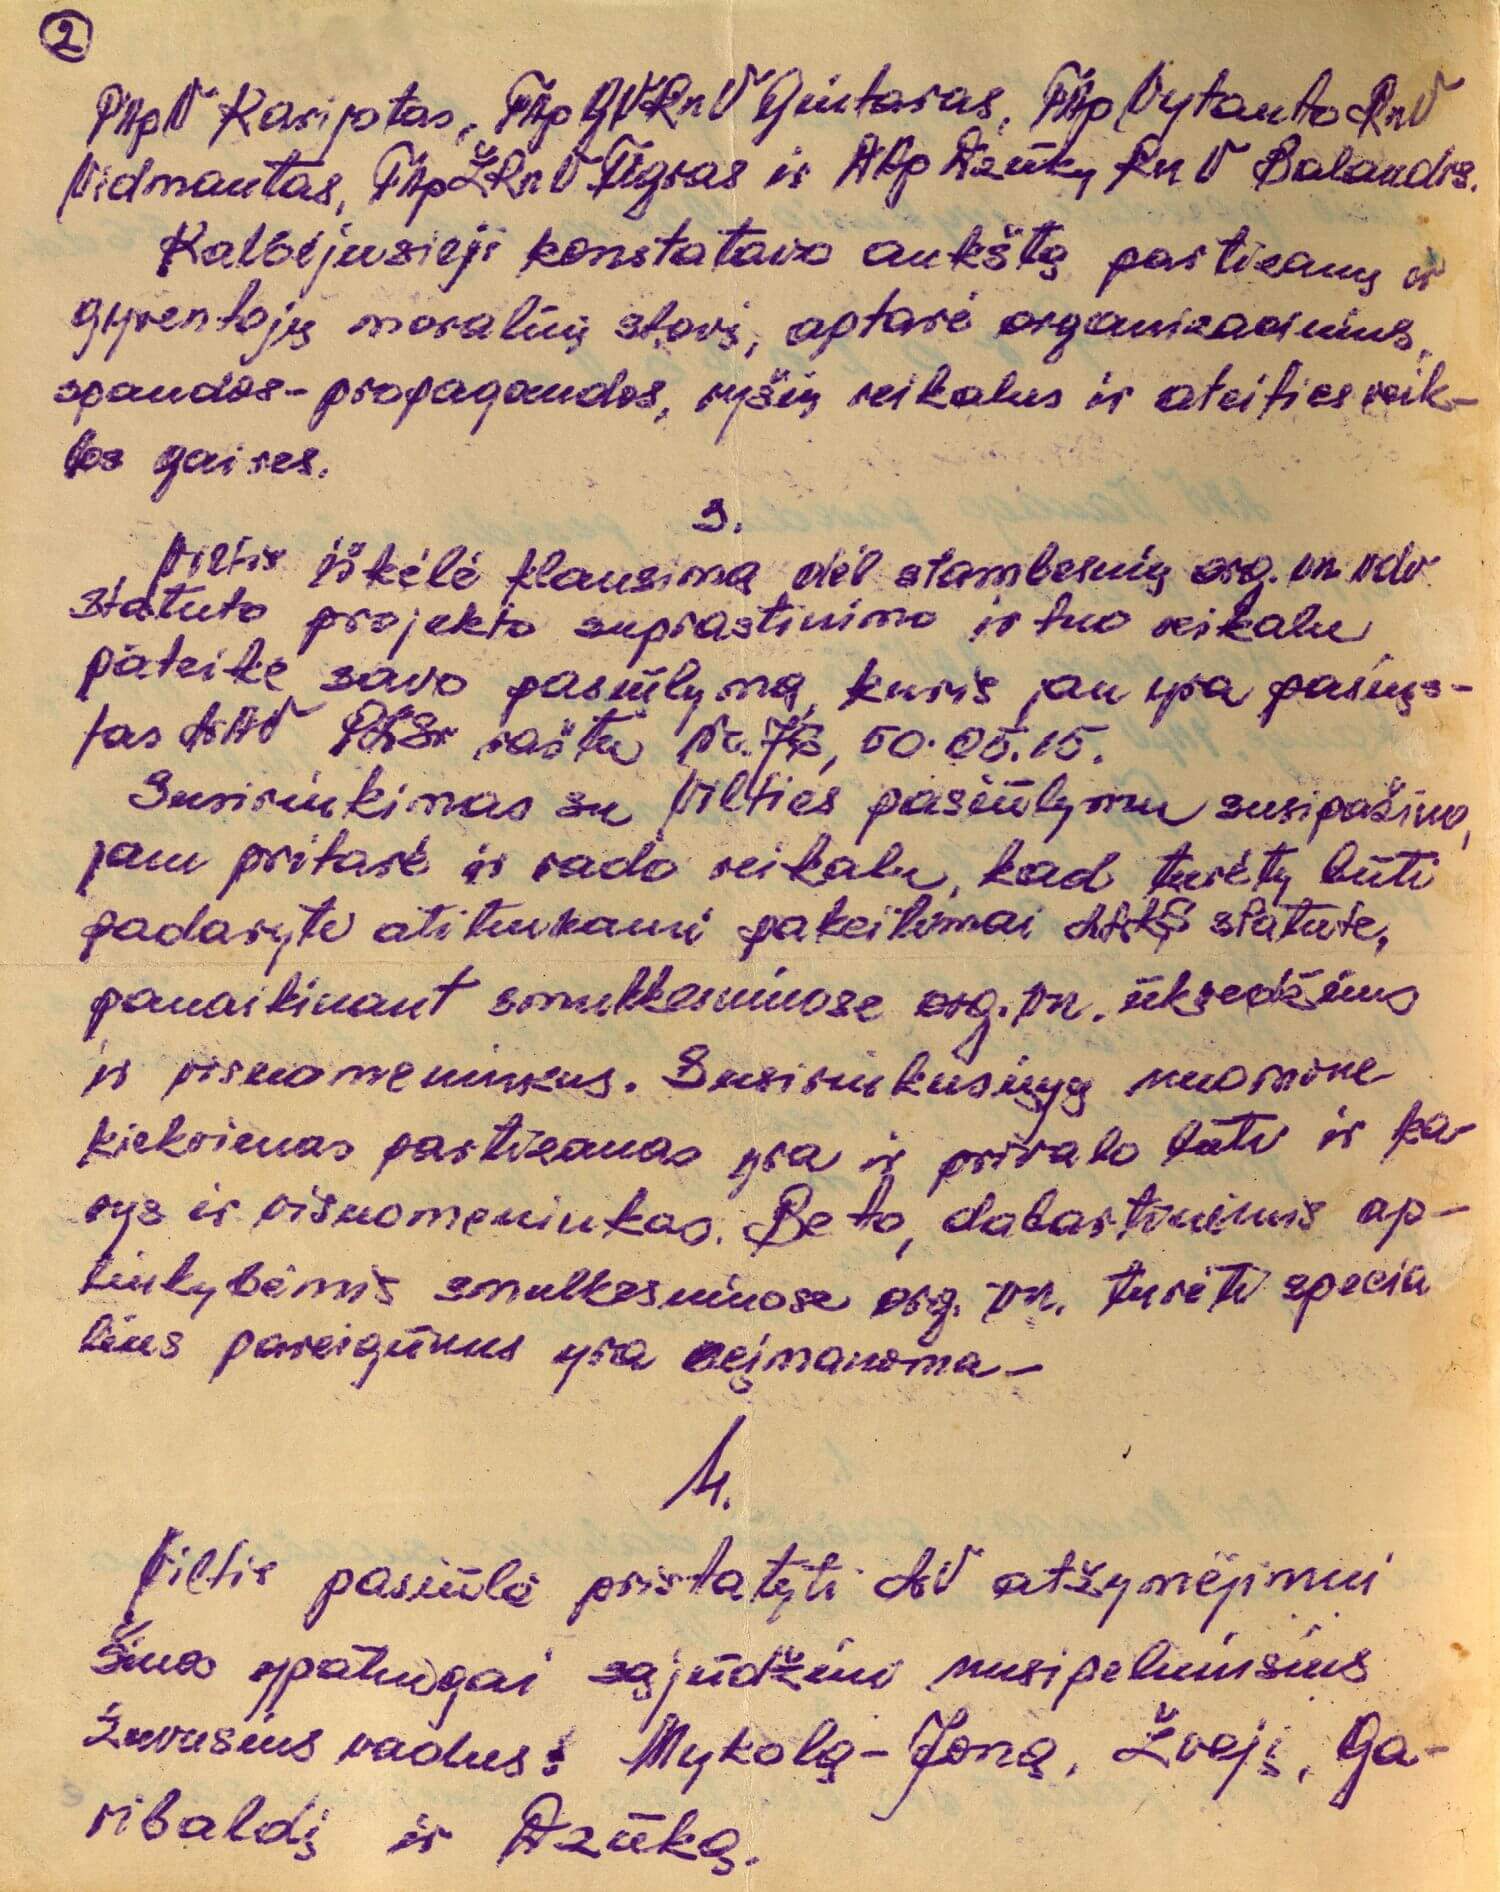 2
PApV Karijotas, PAp GVRnV Gintaras, PAp Vytauto RnV
Vidmantas, PApŽRnV Tigras ir DAp Dzūkų RnV Balandis.
Kalbėjusieji konstatavo aukštą partizanų ir
gyventojų moralinį stovį, aptarė organizacinius,
spaudos-propagandos, ryšių reikalus ir ateities veik-
los gaires.
3.
Viltis iškėlė klausimą dėl stambesnių org. vn. vdv
statuto projekto suprastinimo ir tuo reikalu
pateikė savo pasiūlymą, kuris jau yra pasiųs-
tas raštu 50.05.15.
Susirinkimas su Vilties pasiūlymu susipažino,
jam pritarė ir rado reikalu, kad turėtų būti
padaryti atitinkami pakeitimai LLKS statute,
panaikinant smulkesniuose org. vn. ūkvedžius
ir visuomenininkus. Susirinkusiųjų nuomone
kiekvienas partizanas yra ir privalo būti ir ka-
rys ir visuomenininkas. Be to, dabartinėmis ap-
linkybėmis smulkesniuose org. vn. turėti specia
lius pareigūnus yra neįmanoma—
4.
Viltis pasiūlė pristatyti AV atžymėjimui
šiuos ypatingai sąjūdžiui nusipelniusius
žuvusius vadus: Mykolą-Joną, Žvejį, Ga-
ribaldį ir Dzūką.